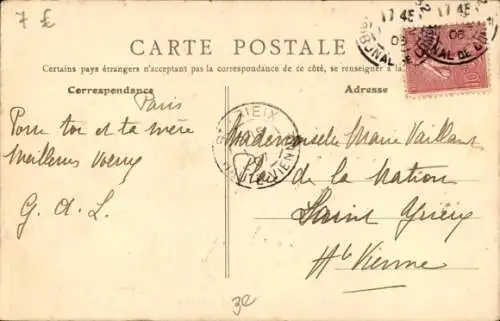 7 £
CARTE POSTALE
Certains pays étrangers n'acceptant pas la correspondance de ce côté, se renseigner à la
Correspondance
Adresse
17 45
06
17 45
06
10
Paris
Pour toi et ta mère
Meilleurs voeux
G. A. L.
YRIEIX
VIENNE
Mademoiselle Marie Vaillant
Place de la Nation
Saint Yrieix
Hte Vienne
3e